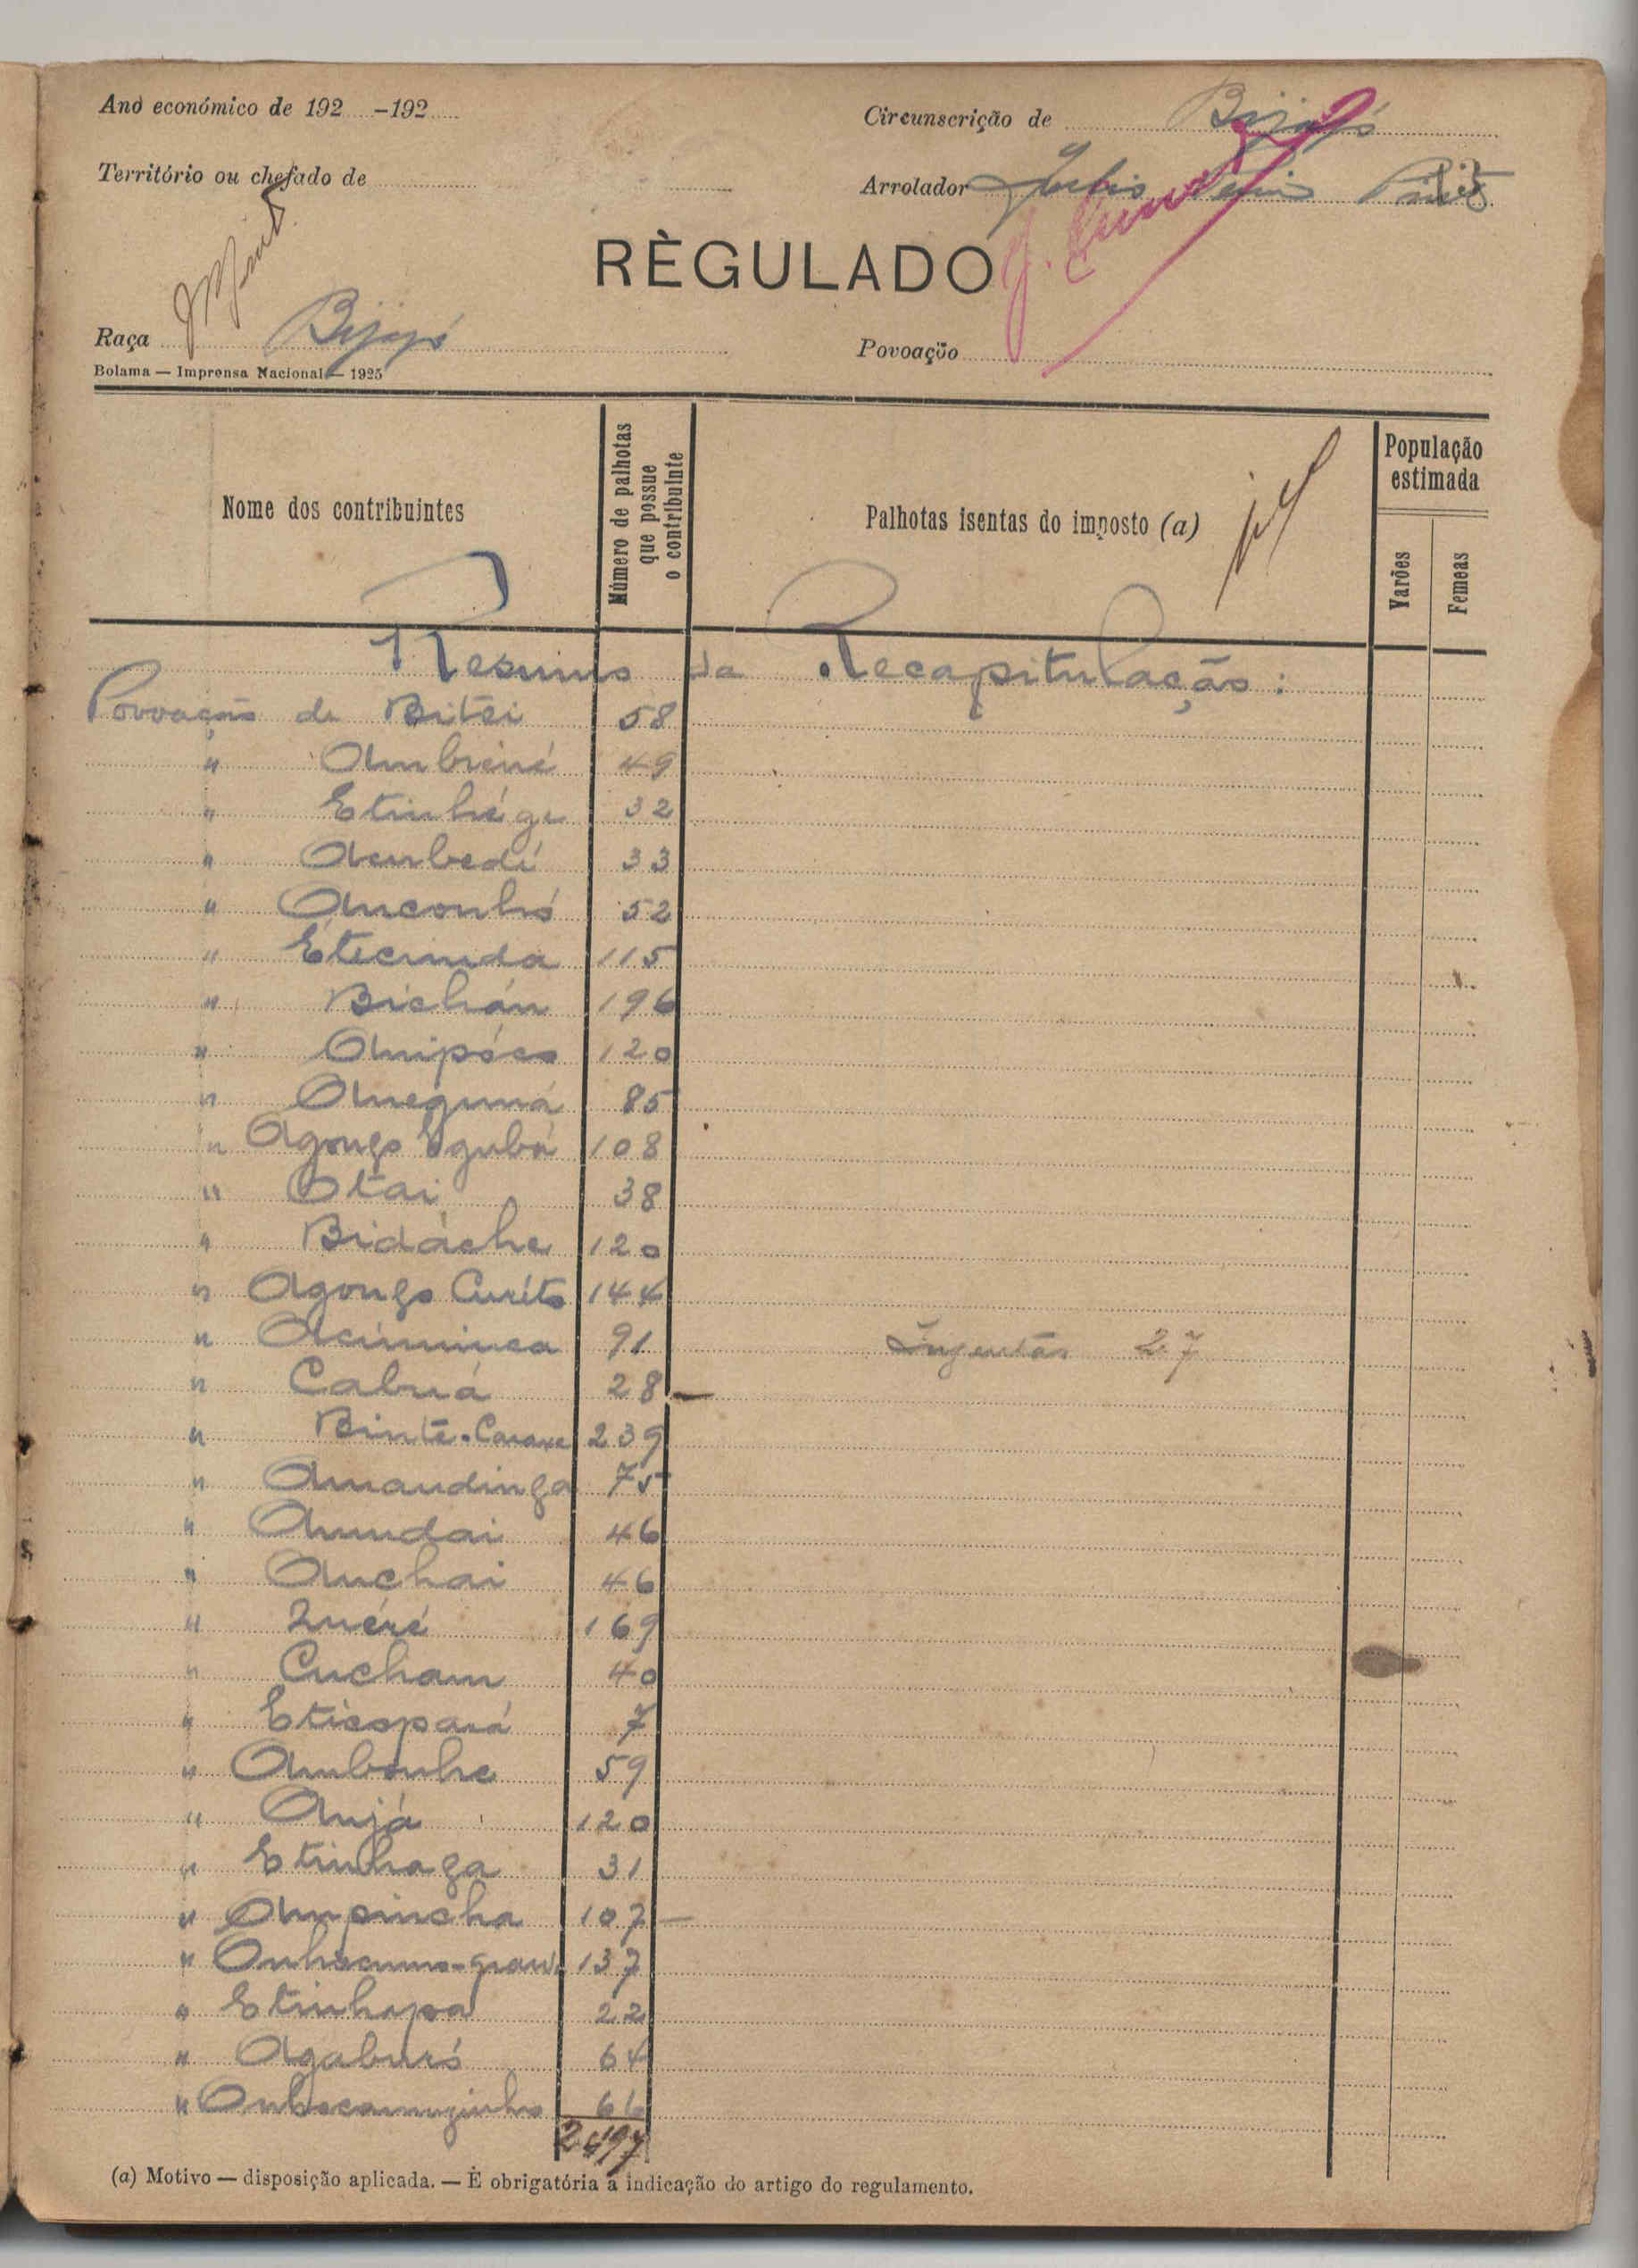 Ano económico de 192 -192
Circunscrição de Bijagó
Território ou chefado de
Arrolador Pinto
RÈGULADO
Raça Bijagó
Povoação
Bolama — Imprensa Nacional — 1925
Nome dos contribuintes
Número de palhotas que possue o contribuinte
Palhotas isentas do imposto (a)
População estimada
Varões
Femeas
Resumo da Recapitulação:
Povoação de Bitei 58
" 49
" Etinhégu 32
" 33
" Anconhó 52
" Étecunda 115
" Bichán 196
" 120
" Aneguná 85
" Agongo Egubá 108
" Otai 38
" Bidáche 120
" Agongo Curito 144
" 91 27
" Cabuá 28
" 239
" Amandinga 75
" 46
" Anchai 46
" 169
" Cucham 40
" Eticopará 7
" Ambonhe 59
" Anjá 120
" Etinhaga 31
" Ampincha 107
" 137
" Etinhapa 22
" Agaburó 64
" 66
2497
(a) Motivo — disposição aplicada. — È obrigatória a indicação do artigo do regulamento.